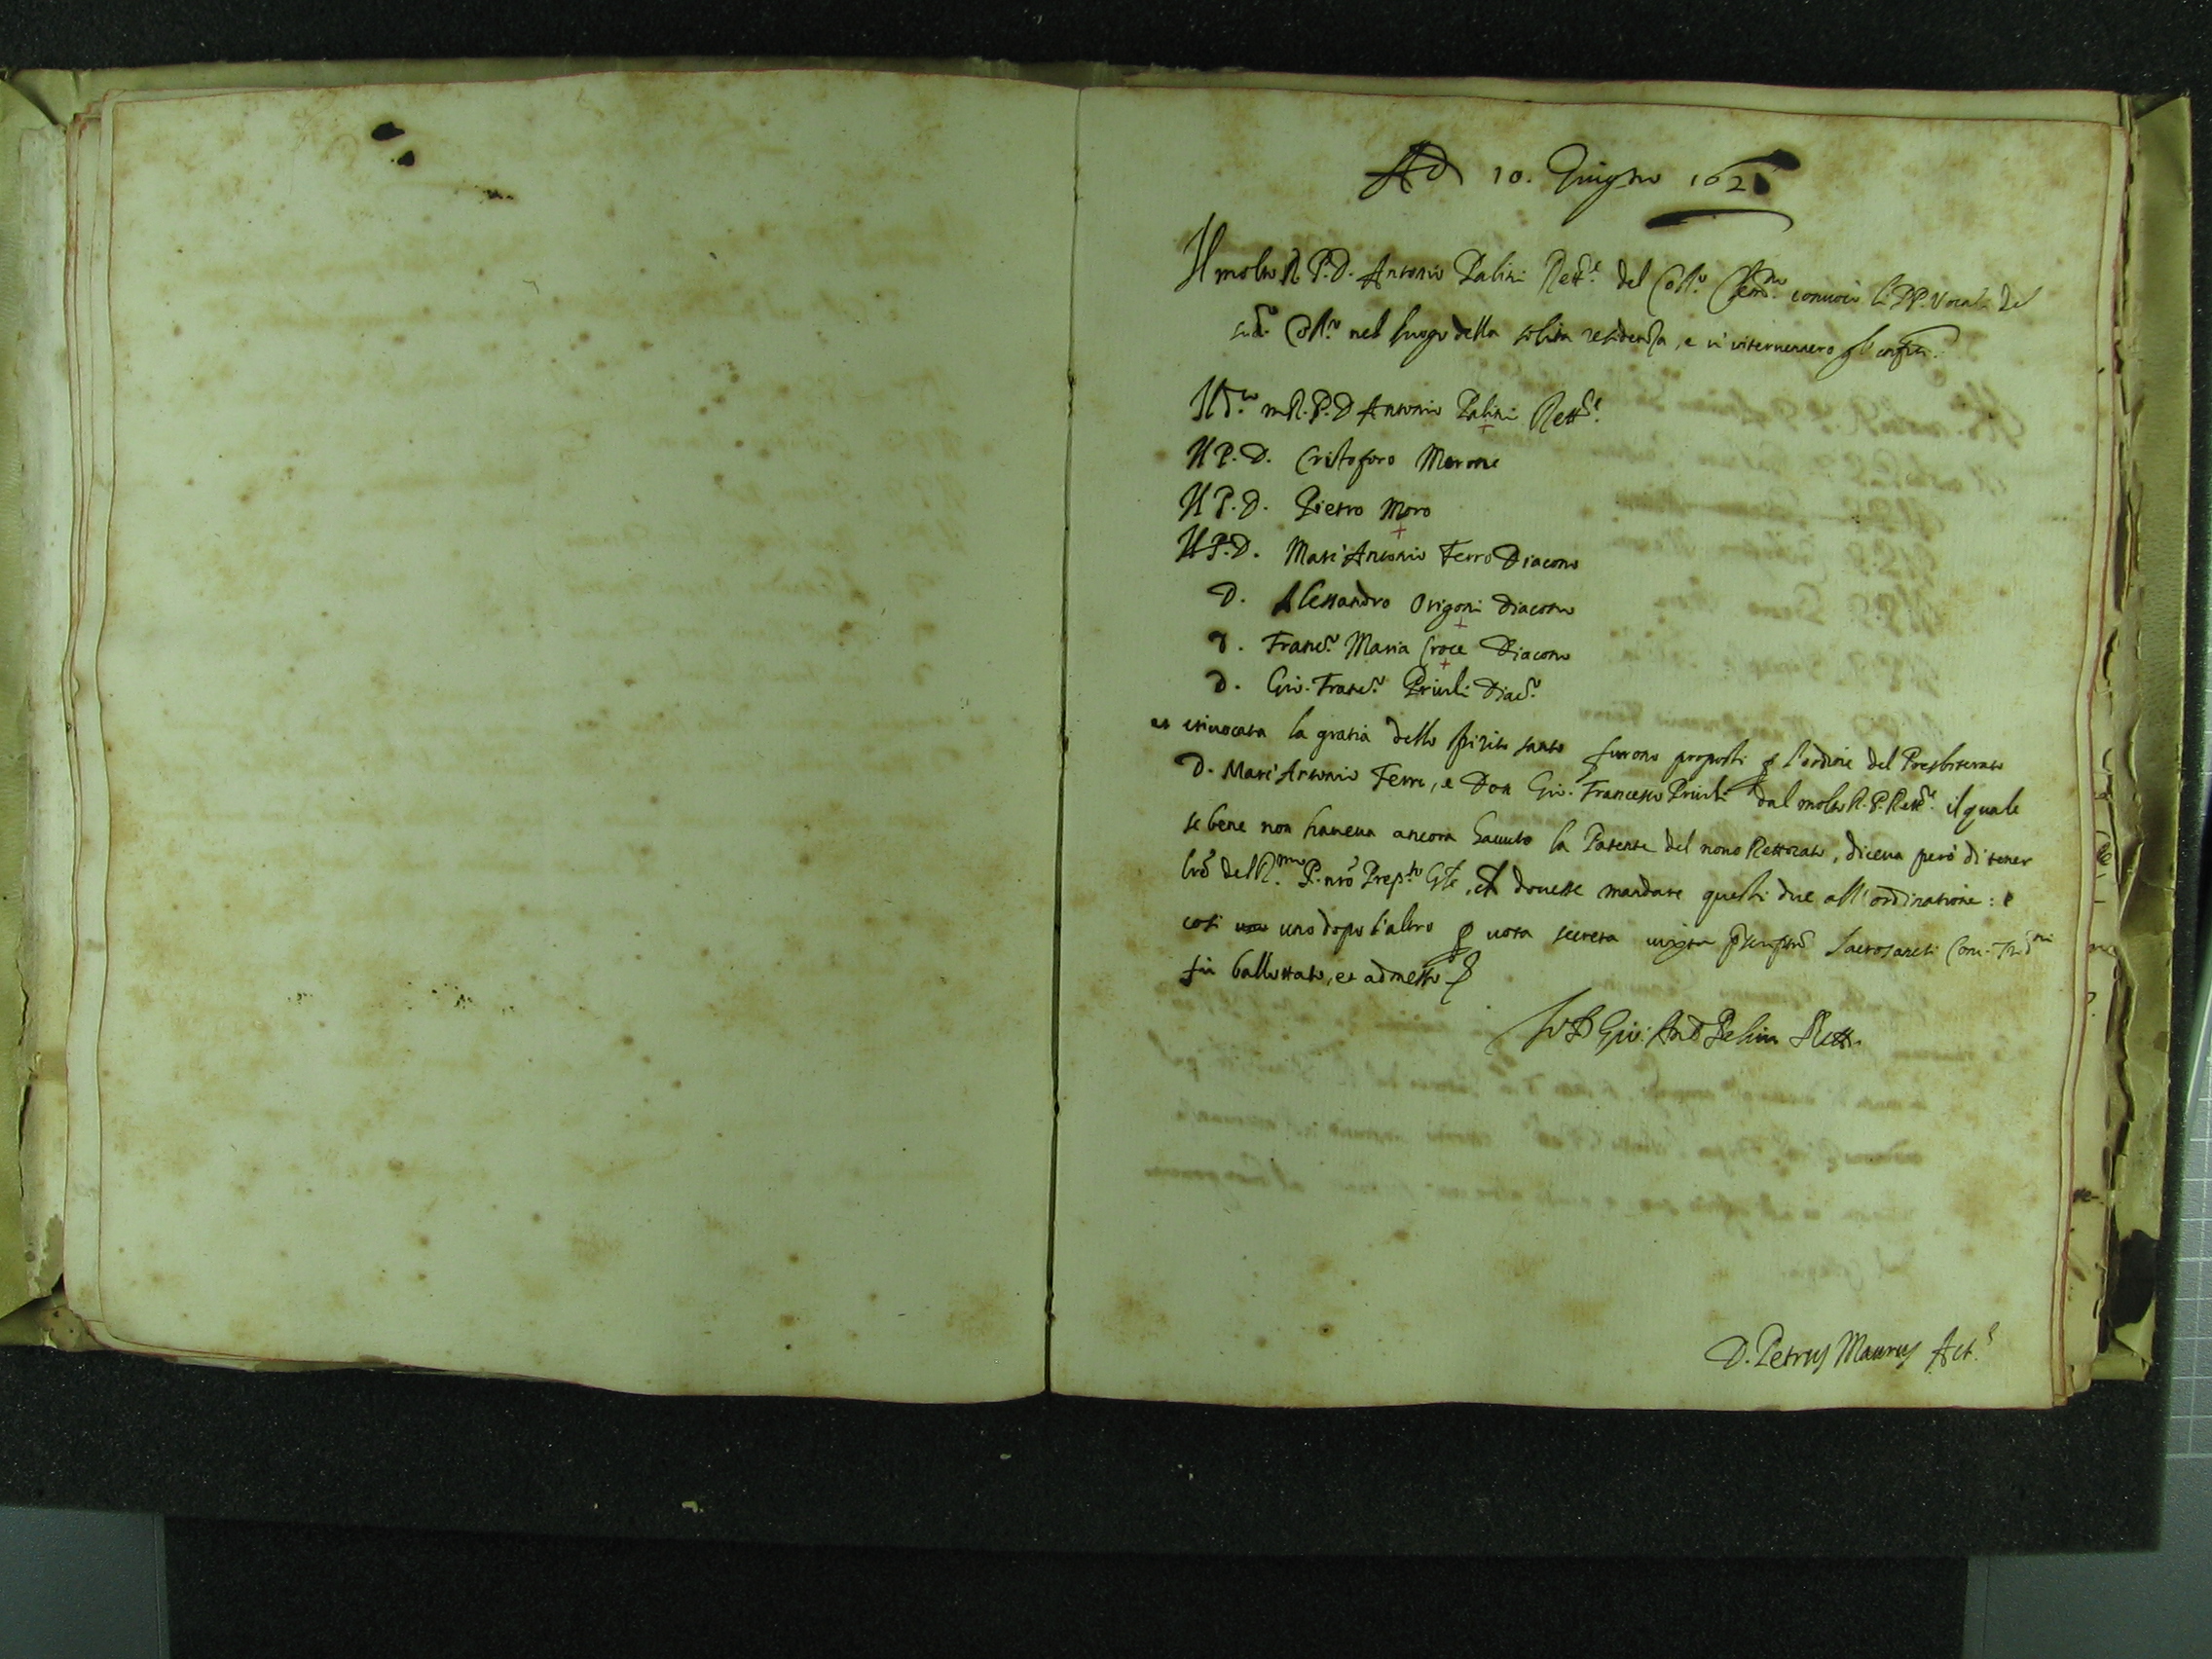 Adi 10. Giugno 162
Il molto R. P. D. Antonio Palini Rett.e del Coll.o Clem.no convocò li PP. Vocali del
sud.o Coll.o nel luogo della solita residenza, e vi intervennero gl'infri.
Il d.to m R. P. D Antonio Palini Rett.e
Il P. D. Cristoforo Morone
Il P. D. Pietro Moro
Il P. D. Marc'Antonio Ferro Diacono
D. Alessandro Origoni Diacono
D. Franc.o Maria Croce Diacono
D. Gio. Franc.o Priuli Diac.o
et invocata la gratia dello spirito santo furono proposti p l'ordine del Presbiterato
D. Marc'Antonio Ferro, e Don Gio. Francesco Priuli dal molto R. P. Rett.e il quale
se bene non haveva ancora havuto la Patente del novo Rettorato, diceva però di tener
lrã del R.mo P. nrõ Prep.to Gle, ch dovesse mandare questi due all'ordinatione: e
così uno dopo l'altro p vota secreta iuxta Sacrosancti Conc. Trid.ni
fù ballottato, et admesso
Io D Gio: Ant Palini Rett.
D. Petrus Maurus Act.s